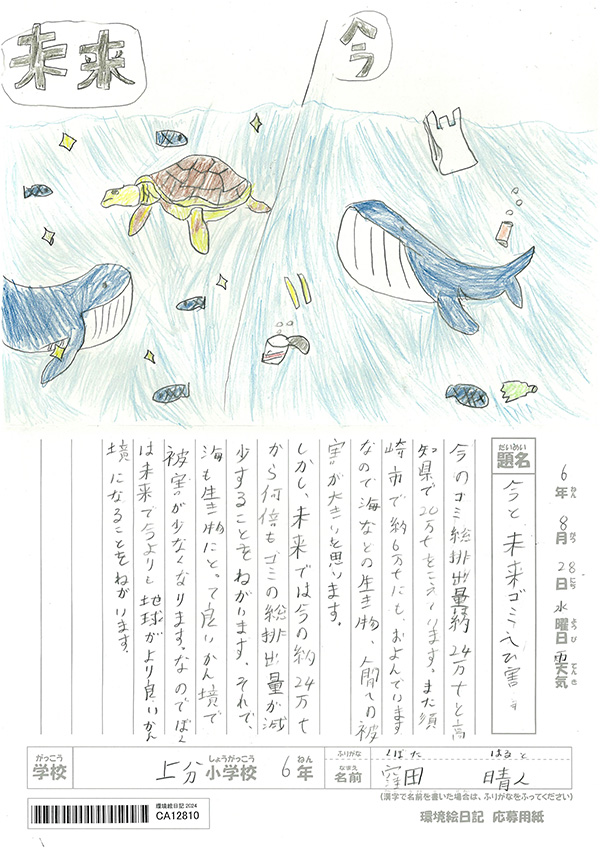 未来
今
6年 8月 28日 水曜日 天気
ねん がつ にち ようび てんき
だいめい
題名
今と、未来ゴミえひ害
今のゴミ総排出量約24万tと高
知県で20万tをこえています。また須
崎市で約6万tにも、およんでいます
なので海などの生き物、人間への被
害が大きいと思います。
しかし、未来では今の約24万t
から何倍もゴミの総排出量が減
少することをねがいます。それで、
海も生き物にとって良いかん境で
被害が少なくなります。なのでぼく
は未来で今よりも地球がより良いかん
境になることをねがいます。
がっこう しょうがっこう ねん
学校 上分小学校 6年
ふりがな くぼた はると
なまえ
名前 窪田 晴人
(漢字で名前を書いた場合は、ふりがなをふってください)
環境絵日記2024
CA12810
環境絵日記 応募用紙